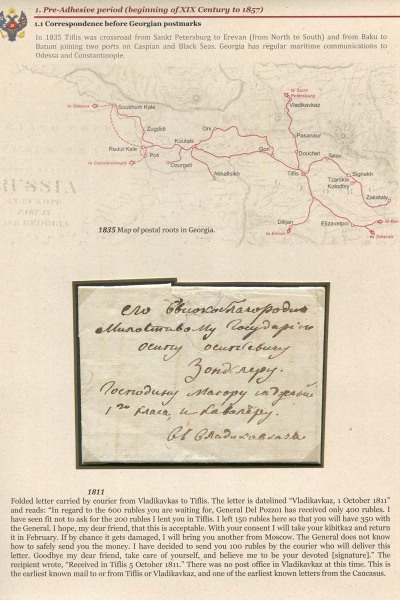 1. Pre-Adhesive period (beginning of XIX Century to 1857)
1.1 Correspondence before Georgian postmarks
In 1835 Tiflis was crossroad from Sankt Petersburg to Erevan (from North to South) and from Baku to
Batum joining two ports on Caspian and Black Seas. Georgia has regular maritime communications to
Odessa and Constantinople.
to Odessa
Soukhum Kale
to Sankt
Petersburg
Vladikavkaz
Zugdidi
Oni
Pasanaur
Redut Kale
Koutais
Douchet
Poti
Gori
Telav
to Constantinople
Ozurgeti
Akhaltsikh
Tiflis
Signakh
Tzarskie
Kolodtzy
Zakataly
RUSSIA
IN EUROPE
PART IN
AND GEORGIA
Dilijan
Elizavetpol
to Erevan
1835 Map of postal roots in Georgia.
его Высокоблагородию
Милостивому Государю
осипу осиповичу
Зондлеру.
Господину Маиору
и Кавалеру.
в Владикавказе
1811
Folded letter carried by courier from Vladikavkas to Tiflis. The letter is datelined "Vladikavkaz, 1 October 1811"
and reads: "In regard to the 600 rubles you are waiting for, General Del Pozzo1 has received only 400 rubles. I
have seen fit not to ask for the 200 rubles I lent you in Tiflis. I left 150 rubles here so that you will have 350 with
the General. I hope, my dear friend, that this is acceptable. With your consent I will take your kibitkaz and return
it in February. If by chance it gets damaged, I will bring you another from Moscow. The General does not know
how to safely send you the money. I have decided to send you 100 rubles by the courier who will deliver this
letter. Goodbye my dear friend, take care of yourself, and believe me to be your devoted [signature]." The
recipient wrote, "Received in Tiflis 5 October 1811." There was no post office in Vladikavkaz at this time. This is
the earliest known mail to or from Tiflis or Vladikavkaz, and one of the earliest known letters from the Caucasus.